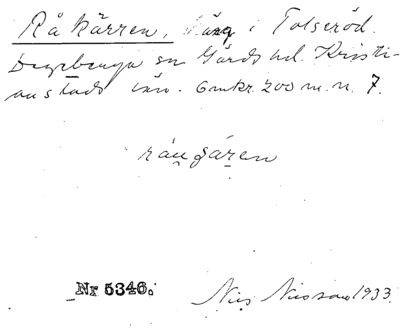 Råkärren, äng i Tolseröd.
Degeberga sn Gärds hd. Kristi-
anstads län. Omkr. 200 m. n. 7.
råu gären
Nr 5346.
Nils Nilsson 1933.